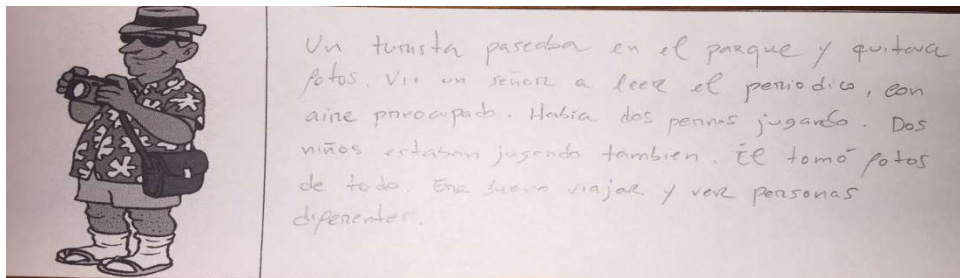 Un turista paseaba en el parque y quitava
fotos. Vio un señor a leer el periodico, con
aire preocupado. Había dos perros jugando. Dos
niños estaban jugando tambien. Él tomó fotos
de todo. Era bueno viajar y ver personas
diferentes.